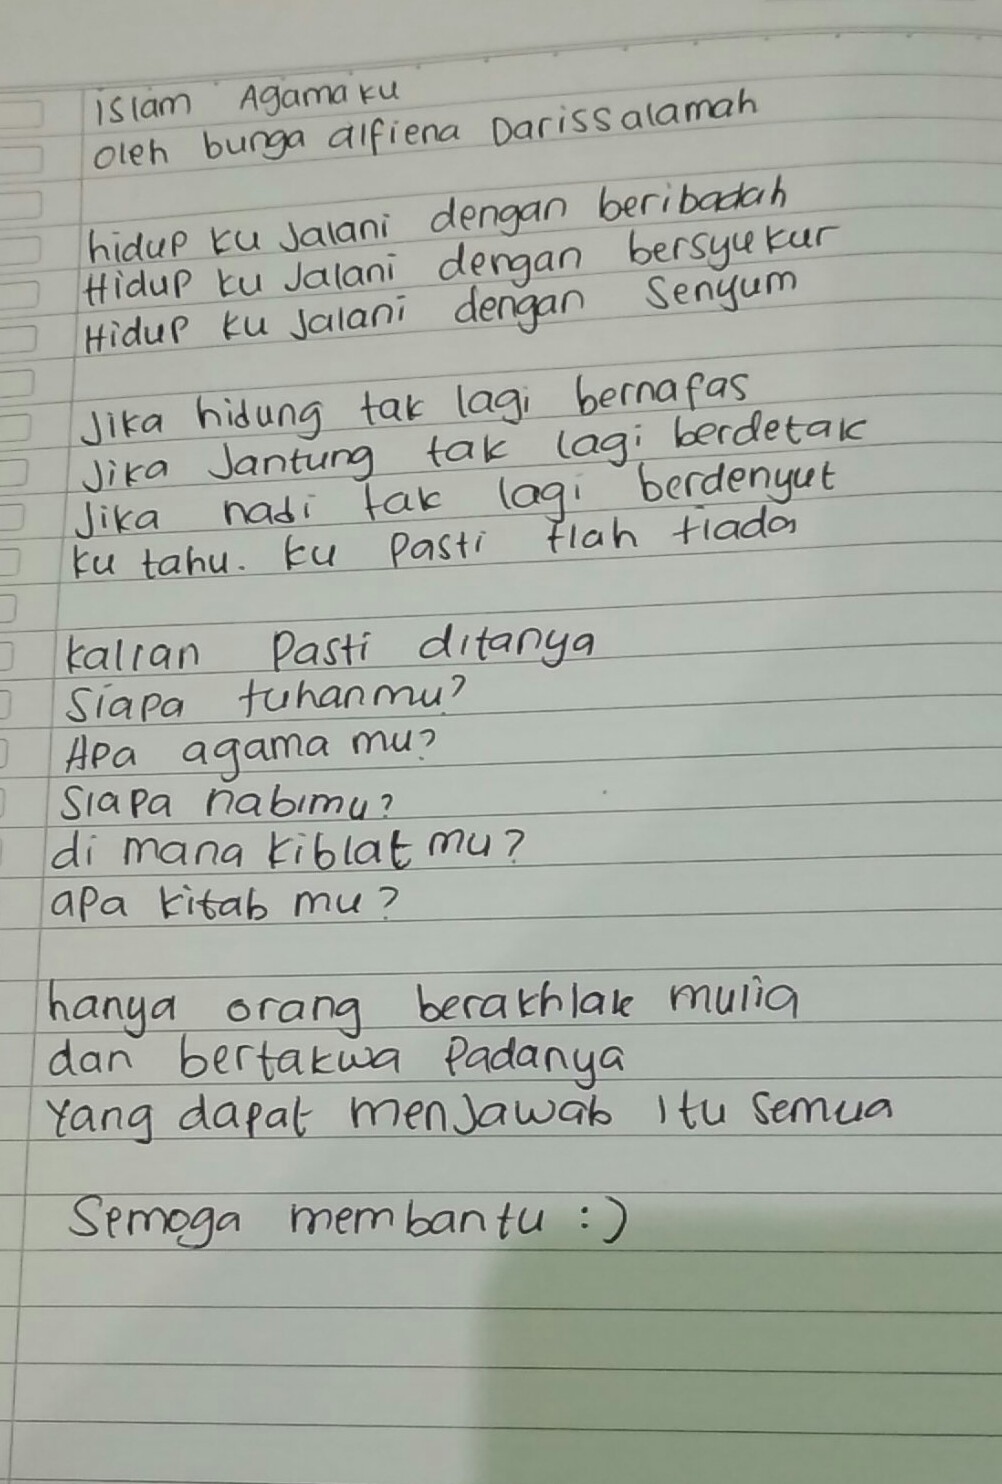 islam Agama ku
oleh bunga alfiena Darissalamah
hidup ku Jalani dengan beribadah
Hidup ku Jalani dengan bersyukur
Hidup ku Jalani dengan Senyum
Jika hidung tak lagi bernafas
Jika Jantung tak lagi berdetak
Jika nadi tak lagi berdenyut
ku tahu. ku Pasti tlah tiada
kalian Pasti ditanya
Siapa tuhanmu?
Apa agama mu?
Siapa nabimu?
di mana kiblat mu?
apa kitab mu?
hanya orang berakhlak mulia
dan bertakwa Padanya
Yang dapat menJawab itu semua
Semoga membantu :)